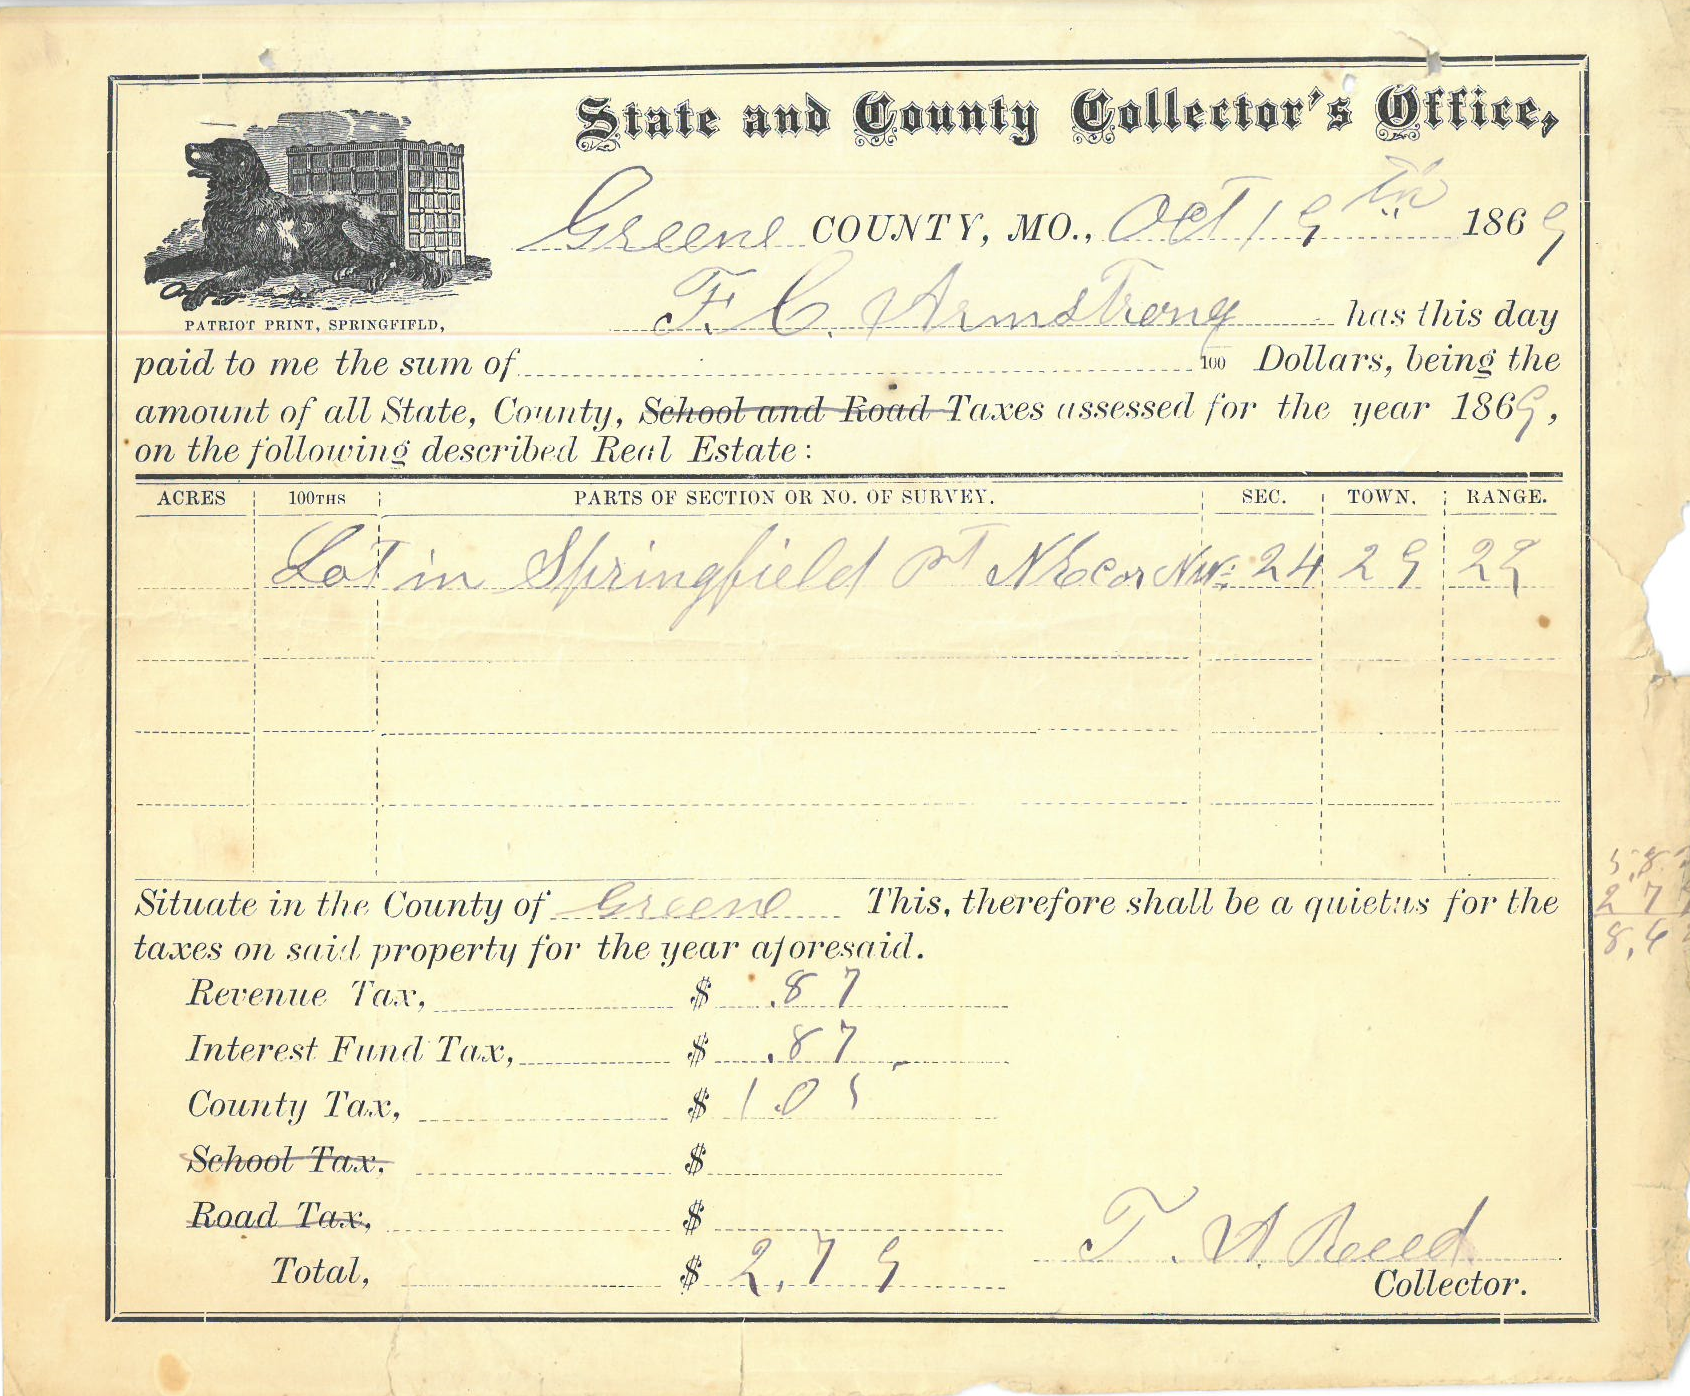 State and County Collector's Office,
Greene COUNTY, MO., Oct 19th 1869
PATRIOT PRINT, SPRINGFIELD,
F. C. Armstrong has this day
paid to me the sum of 100 Dollars, being the
amount of all State, County, School and Road Taxes assessed for the year 1869,
on the following described Real Estate:
ACRES 100THS PARTS OF SECTION OR NO. OF SURVEY. SEC. TOWN. RANGE.
Lot in Springfield pt NE cor NW 24 29 22
Situate in the County of Greene This, therefore shall be a quietus for the
taxes on said property for the year aforesaid.
Revenue Tax, $ .87
Interest Fund Tax, $ .87
County Tax, $ 1.05
School Tax. $
Road Tax, $
Total, $ 2.79
T. A. Reed
Collector.
5.8
2 7
8.6